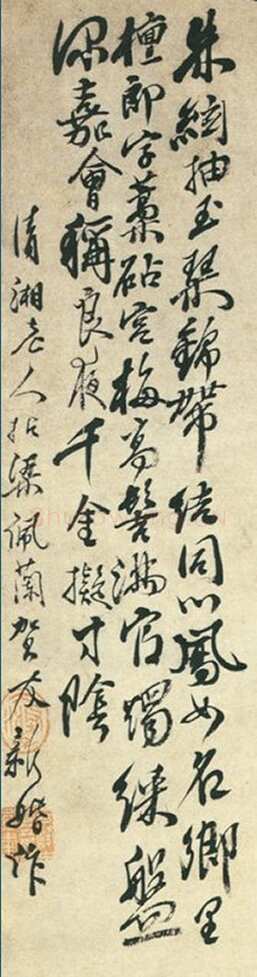 朱抽玉琴錦帶結同心鳳女名鄉里
檀郎字藁砧宮梅高髻滿官燭綵盤
深嘉會稱良夜千金擬寸陰
清湘老人拈梁佩蘭賀友新婚作